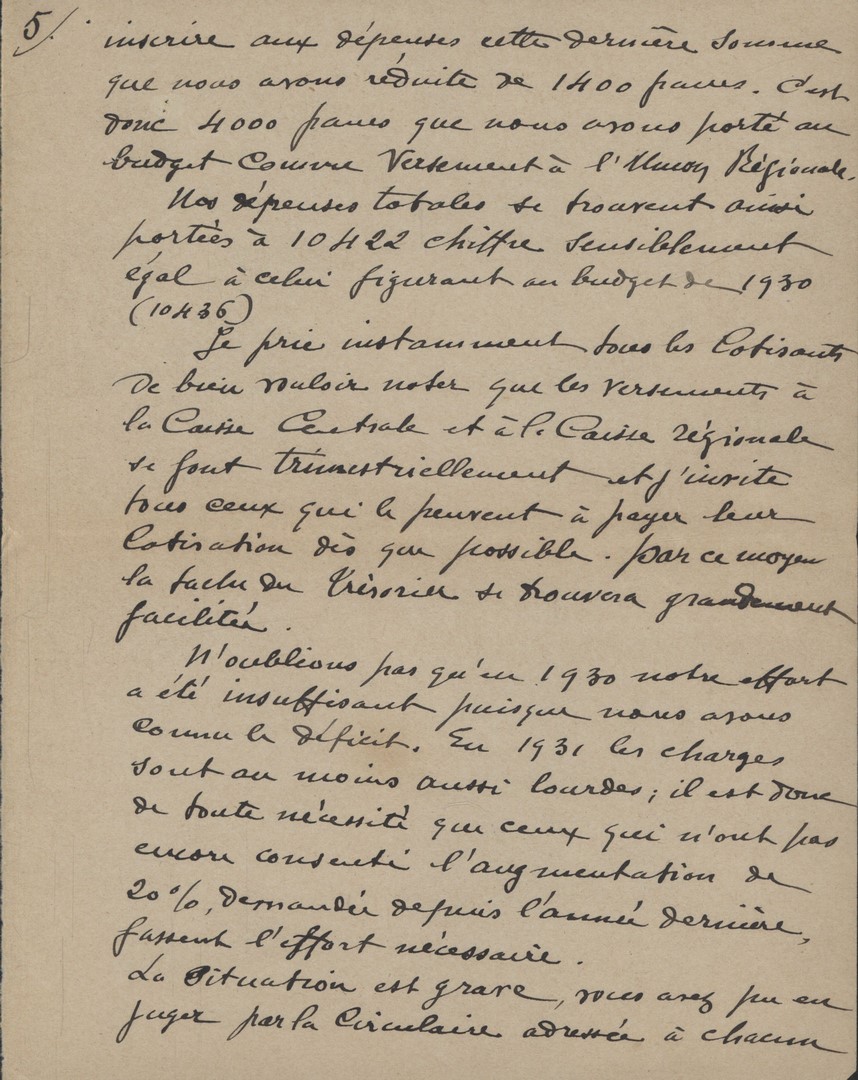 5/.
inscrire aux dépenses cette dernière somme
que nous avons réduite de 1400 francs. C'est
donc 4000 francs que nous avons porté au
budget comme Versement à l'Union Régionale.
Nos dépenses totales se trouvent ainsi
portées à 10422 chiffre sensiblement
égal à celui figurant au budget de 1930
(10436)
Je prie instamment tous les Cotisants
de bien vouloir noter que les versements à
la Caisse Centrale et à la Caisse régionale
se font trimestriellement et j'invite
tous ceux qui le peuvent à payer leur
Cotisation dès que possible. Par ce moyen
la tache du Trésorier se trouvera grandement
facilitée.
N'oublions pas qu'en 1930 notre effort
a été insuffisant puisque nous avons
connu le déficit. En 1931 les charges
sont au moins aussi lourdes; il est donc
de toute nécessité que ceux qui n'ont pas
encore consenti l'augmentation de
20%, demandée depuis l'année dernière,
fassent l'effort nécessaire.
La situation est grave, vous avez pu en
juger par la Circulaire adressée à chacun